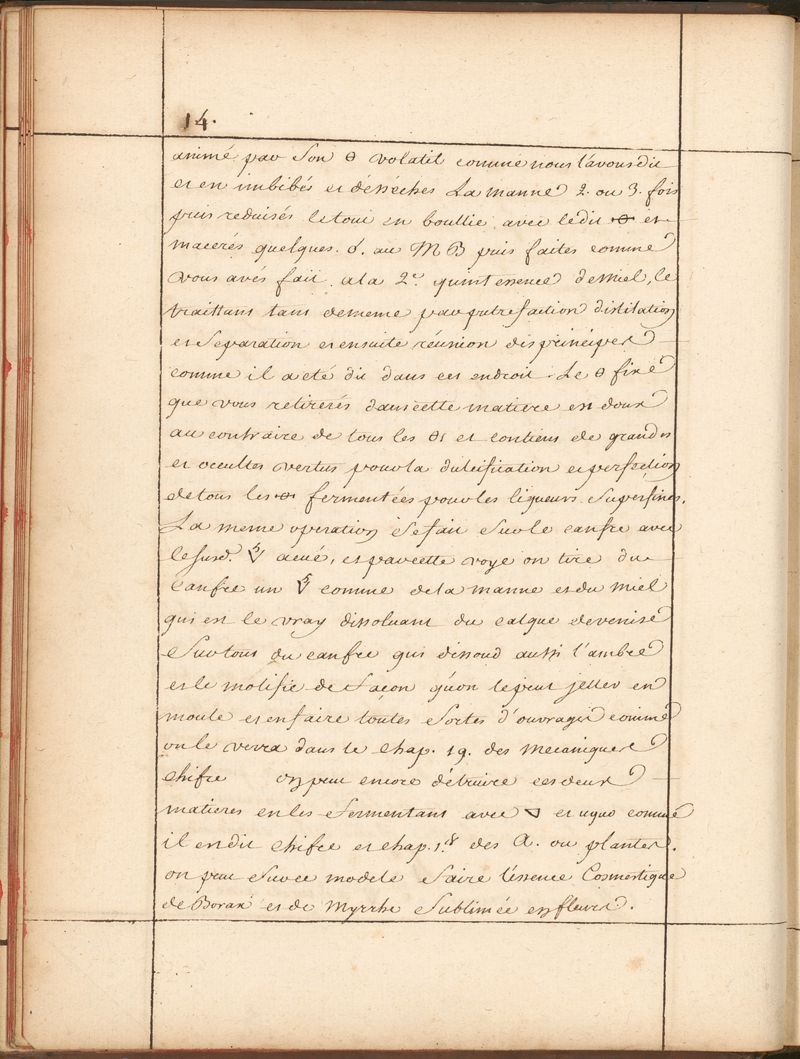 14.
animé par son 🜔 volatil comme nous l'avons dit
et en imbibés et désséchés La manne 2. ou 3. fois
puis reduisés le tout en boullie avec le dit 🜔 et
macerés quelques. d. au MB puis faites comme
vous avés fait. a la 2.e quintessence de Miel, le
traittant tant de meme par putrefaction distilation
et separation et ensuite réunion des principes
comme il a eté dit dans cet endroit. Le 🜔 fixe
que vous retirerés dans cette matiere est doux
au contraire de tous les 🜔s et contient de grandes
et occultes vertus pour la dulcification et perfection
de tous les 🜔 fermentées pour les liqueurs superfines.
La meme operation se fait sur le canfre avec
le susd. 🜄 acué, et par cette voye on tire du
Canfre un 🜄 comme de la manne et du miel
qui est le vray dissoluant du talque de venise
surtout du canfre qui dissoud aussi l'ambre
et le molifie de façon qu'on le peut jetter en
moule et en faire toutes sortes d'ouvrages comme
on le verra dans le chap. 19. des mecaniques
chifre on peut encore détruire ces deux
matieres en les fermentant avec 🜄 et comme
il en dit chifre et chap. 18 des A. ou plantes.
on peut sur ce modele faire l'éssence Cosmestique
de Borax et de Myrrhe sublimée en fleurs.